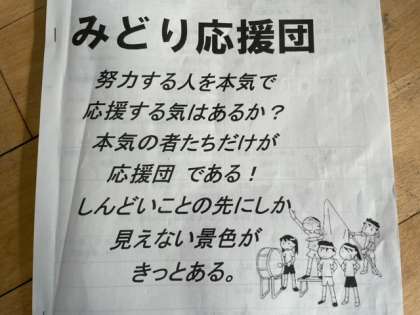 みどり応援団
努力する人を本気で
応援する気はあるか？
本気の者たちだけが
応援団 である！
しんどいことの先にしか
見えない景色が
きっとある。